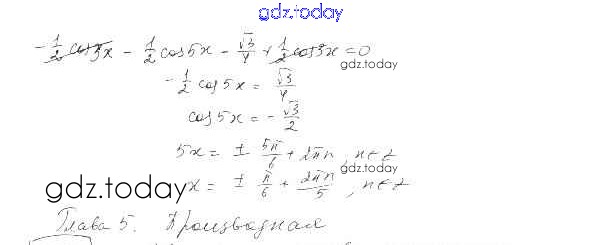 gdz.today
-1/2 cos3x - 1/2 cos5x - √3/4 + 1/2 cos3x = 0
gdz.today
-1/2 cos5x = √3/4
cos5x = -√3/2
5x = ± 5π/6 + 2πn, n∈Z
gdz.today
gdz.today
x = ± π/6 + 2πn/5, n∈Z
Глава 5. Производная